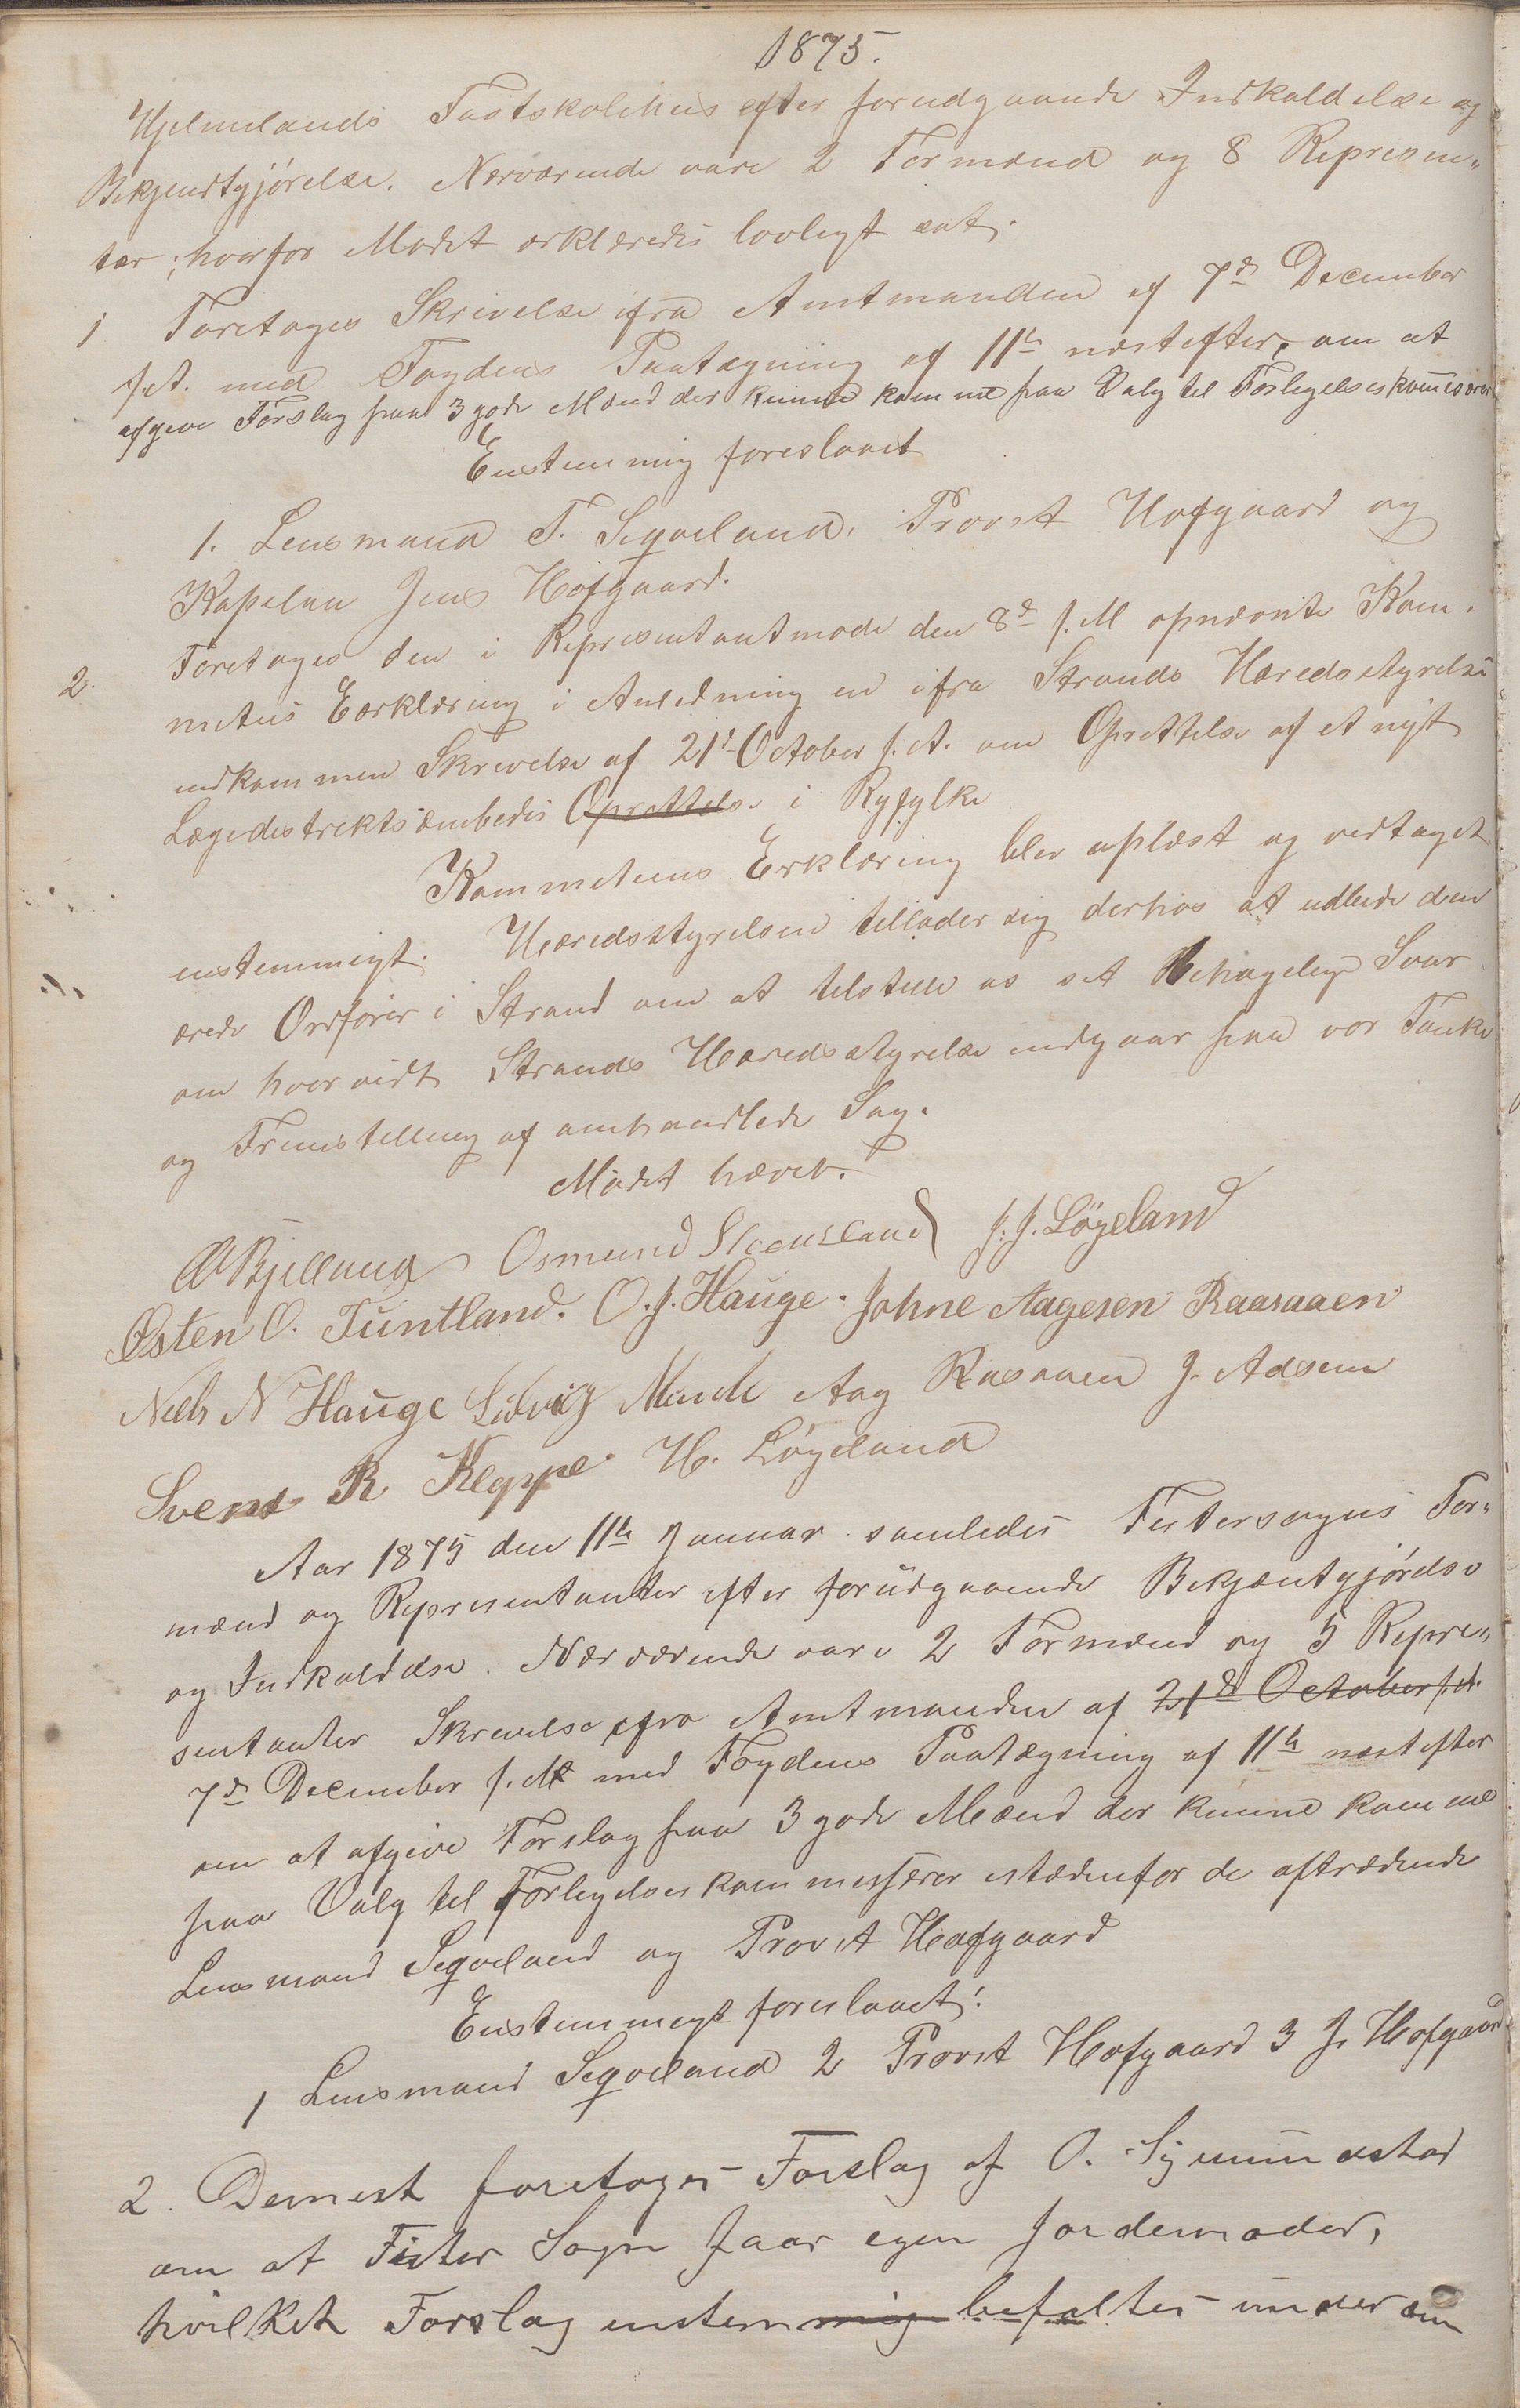 1875.
Hjelmelands Fastskolehus efter forudgaaende Indkaldelse og
Bekjendtgjørelse. Nærværende vare 2 Formænd og 8 Represen„
ter; hvorfor Mødet erklæredes lovligt sat.
1 Foretoges Skrivelse ifra Amtmanden af 7de December
f.A. med Fogdens Paategning af 11te næstefter, om at
afgive Forslag paa 3 gode Mænd der kunne komme paa Valg til Forligelseskommisærer
Enstemmig foreslaaet
1. Lensmand T. Seqveland, Provst Hofgaard og
Kapelan Jens Hofgaard.
2. Foretoges den i Representantmøde den 8de f.M opnævnte Kom„
metees Eærklæring i Anledning en ifra Strands Hæredsstyrelse
indkommen Skrivelse af 21de October f.A. om Oprettelse af et nyt
Lægedistriktsembedes Oprettelse i Ryfylke
Kommeteens Erklæring blev oplæst og vedtaget
enstemmigt. Hæredsstyrelsen tillader sig derhos at udbede den
ærede Ordfører i Strand om at tilstille os et Behagelige Svar
om hvorvidt Strands Hæredsstyrelse indgaar paa vor Tanke
og Fremstilling af omhandlede Sag.
Mødet hævet.
A Bjelland Osmund Steensland J. J. Løgeland
Østen O. Tuntland. O. J. Hauge. Johne Aagesen Raasaaen
Niels N Hauge Ludvig Munk Aag Rasaaen J. Adsen
Svend R Kleppe H. Løgeland
Aar 1875 den 11te Januar samledes Fistersognes For„
mænd og Representanter efter forudgaaende Bekjæntgjørelse
og Indkaldelse. Nærværende vare 2 Formænd og 5 Repre„
sentanter Skrivelse ifra Amtmanden af 21de October f.A.
7de December f.A med Fogdens Paategning af 11te næstefter
om at afgive Forslag paa 3 gode Mænd der kunne komme
paa Valg til Forligelseskommessærer istædenfor de aftrædende
Lensmand Seqveland og Provst Hofgaard
Enstemmegt foreslaaet:
1 Lensmand Seqveland 2 Provst Hofgaard 3 J. Hofgaard
2. Dernest foretoges Forslag af O. Sigmundstad
om at Fister Sogn faar egen Jordemoder,
hvilket Forslag enstemmig befaltes under en